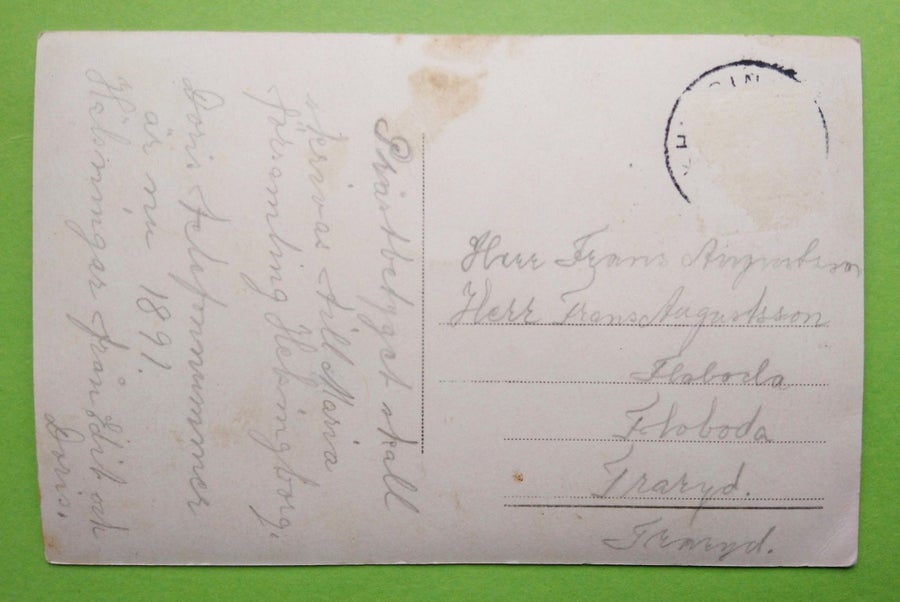 Prästbetyget skall
skrivas till Maria
församling Helsingborg.
Doris telefonnummer
är nu 1891.
Hälsningar från Edit och
Doris.
Herr Frans Augustsson
Herr Frans Augustsson
Floboda
Floboda
Traryd.
Traryd.